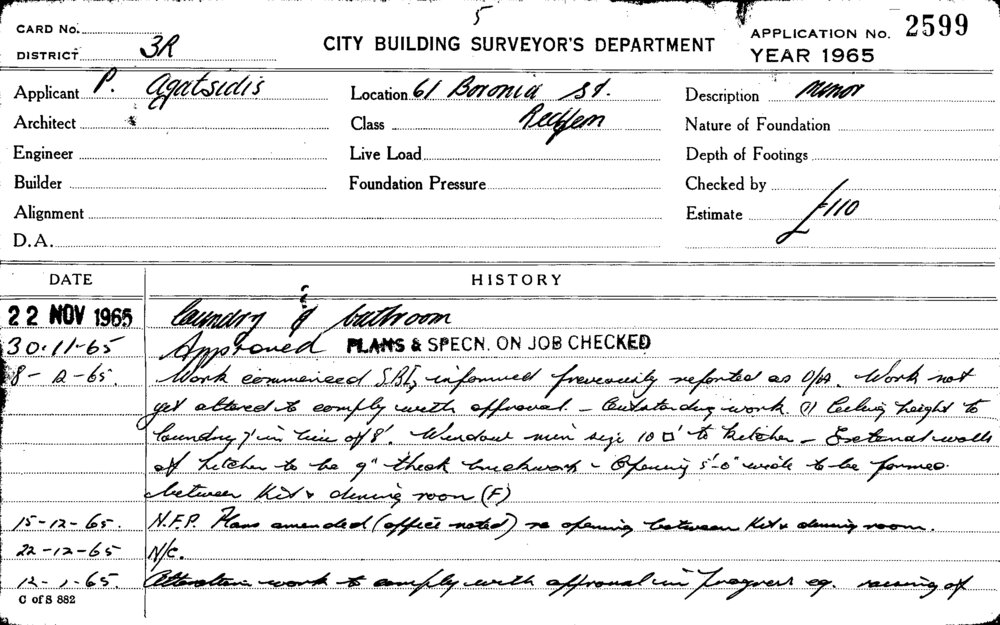 5
CARD No.
DISTRICT 3R
CITY BUILDING SURVEYOR'S DEPARTMENT
APPLICATION No. 2599
YEAR 1965
Applicant P. Agatsidis
Location 61 Boronia St.
Description minor
Architect
Class Redfern
Nature of Foundation
Engineer
Live Load
Depth of Footings
Builder
Foundation Pressure
Checked by
Alignment
Estimate £110
D.A.
DATE HISTORY
22 NOV 1965 laundry & bathroom
30.11-65 Approved PLANS & SPECN. ON JOB CHECKED
8-12-65. Work commenced informed previously reported as Work not
yet altered to comply with approval. - Outstanding work. (1) Ceiling height to
laundry 7' in lieu of 8'. Window min size 10 □' to kitcher - External walls
of kitchen to be 9" thick brickwork - Opening 5'-0" wide to be formed
between Kit & dining room (F)
15-12-65. N.F.P. Plans amended (office noted) re opening between Kit & dining room.
22-12-65 N/c.
12-1-65. Alteration work to comply with approval in progress eg. raising of
C of S 882